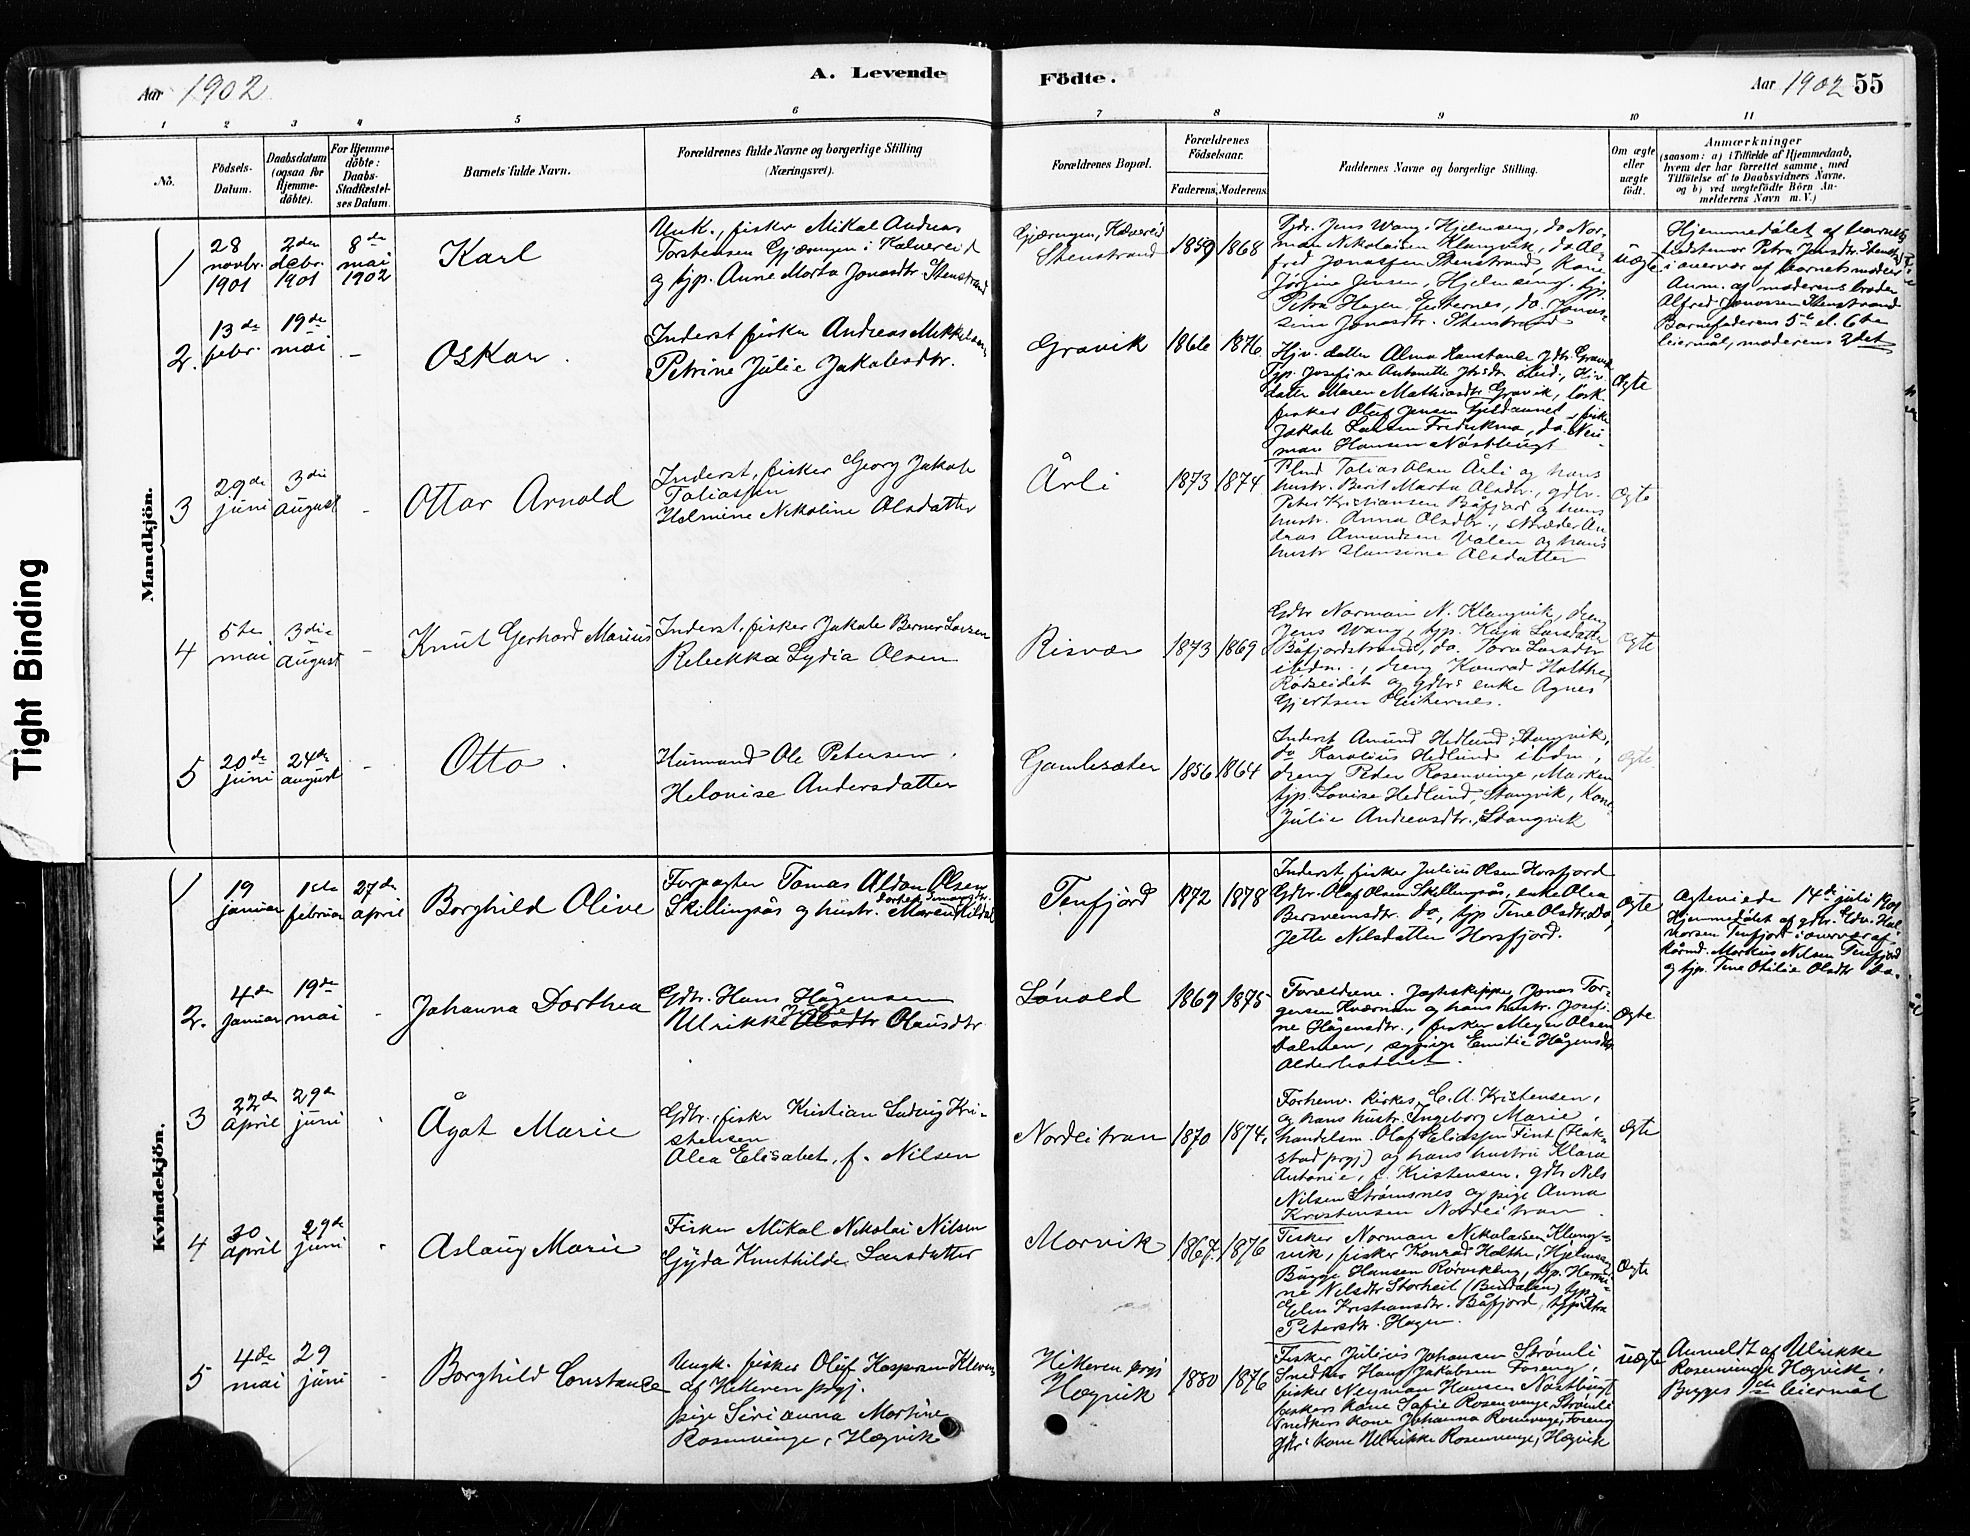 Aar 1902
A. Levende
Födte.
Aar 1902 55
1 2 3 4 5 6 7 8 9 10 11
No.
Födsels-
Datum.
Daabsdatum
(ogsaa for
Hjemme-
döbte).
For Hjemme-
döbte:
Daabs-
Stadfæstel-
ses Datum.
Barnets fulde Navn.
Forældrenes fulde Navne og borgerlige Stilling
(Næringsvei).
Forældrenes Bopæl.
Forældrenes
Födselsaar.
Faderens. Moderens.
Faddernes Navne og borgerlige Stilling.
Om ægte
eller
uægte
födt.
Anmærkninger
(saasom: a) i Tilfælde af Hjemmedaab,
hvem der har forrettet samme, med
Tilföielse af to Daabsvidners Navne,
og b) ved uægtefödte Börn An-
melderens Navn m. V.)
Tight Binding
Mandkjön.
1
28
novbr.
1901
2den
debr.
1901
8de
mai
1902
Karl
Unk., fisker Mikal Andreas
Torstensen Gjæringen i Kolvereid
og pp. Anne Marta Jonasdtr. Stenstrand
Gjæringen, Kolvereid
Stenstrand
1859 1868
Gdr. Jens Wang, Hjelmseng, do Nor-
man Nikolaisen Klangvik, do Al-
fred Jonassen Stenstrand, kone
Jörgine Jensen, Hjelmseng, pp.
Petra Hagen, Geiternes, do Jonas-
sine Jonasdtr. Stenstrand
uægte
Hjemmedöbt af barnets
bedstemor Petra Jensdtr. Stenstrand
i overvær af barnets moder
Anm. af moderens broder
Alfred Jonassen Stenstrand
Barnefaderens 5te el. 6te
leiermål, moderens 2det
2.
13de
febr.
19de
mai
-
Oskar.
Inderst fisker Andreas Mikkelsen
Petrine Julie Jakobsdtr.
Gravik
1866 1876
Hjv. datter Alma Konstance Jdtr. Gravik
pp. Josefine Antonette
datter Maren Mathiasdtr. Gravik, losk
fisker Oluf Jensen
Jakob Larsen
man Hansen Nöstbugt
ægte
3
29de
juni
3die
august
-
Ottar Arnold
Inderst, fisker Georg Jakob
Tobiassen
Halmine Nikoline Olsdatter
Årli
1873 1874
Plmd. Tobias Olsen Årli og hans
hustr. Berit Marta Olsdtr., gdbr.
Peter Kristiansen Båfjord og hans
hustr. Anna Olsdtr., stræder An-
dreas Amundsen Valen og hans
hustr Hansine Olsdatter
ægte
4
5te
mai
3die
august
-
Knut Gerhard Marius
Inderst, fisker Jakob Berner Larsen
Rebekka Lydia Olsen
Risvær
1873 1869
Gdbr Norman N. Klangvik, dreng
Jens Wang, pp. Kaja Larsdatter
Båfjordstrand, do. Tora Larsdtr
ibdm., dreng Konrad Holthe,
Rödseidet og gdbrs enke Agnes
Gjertsen Geiternes.
ægte
5
20de
juni
24de
august
-
Otto.
Husmand Ole Petersen,
Helovise Andersdatter
Gamlesæter
1856 1864
Inderst Amund Hedlund, Stangvik,
do Karolius Hedlund ibdm,
dreng Peder Rosenvinge, Marken
pp. Lovise Hedlund, Stangvik, kone
Julie Andreasdtr., Stangvik
ægte
Kvindekjön.
1
19
januar
1ste
februar
27de
april
Borghild Olive
Forpagter Tomas Aldon Olsen
Skillingsås og hustr. Maren Hilda
Tenfjord
1872 1878
Inderst, fisker Julius Olsen Horsfjord
Gdbr. Olaf Olsen Skillingsås, enke Olea
Bersvensdtr. do, pp Tine Olsdtr. Do,
Jette Nilsdatter Horsfjord.
ægte
Ægteviede 14de juli 1901
Hjemmedöbt af gdbr. Edv. Hal-
vorsen Tenfjord i overvær af
kårmd. Markus Nilsen Tenfjord
og pp. Tine Otilie Olsdtr do.
2.
4de
januar
19de
mai
-
Johanna Dorthea
Gdbr. Hans Hågensen
Ulrikke Olsdtr Olausdtr
Lövold
1869 1875
Forældrene. Jagtskipper Jonas Tor-
gersen Kværnan og hans hustr. Josefi-
ne Hågensdtr., fisker Meyer Olsen
Dalmen, sypige Emilie Hågensdtr
ægte
3
22de
april
29de
juni
-
Ågot Marie
Gdbr., fisker Kristian Ludvig Kri-
stensen
Olea Elisabet, f. Nilsen
Nordeitran
1870 1874.
Forhenv. kirkes. C. A. Kristensen,
og hans hustr. Ingeborg Marie,
handelsm. Olaf Eliassen Fint (Flak-
stad prgj) og hans hustru Klara
Antonie, f. Kristensen, gdb Nils
Nilsen Strömsnes og pige Anna
Kristensen Nordeitran.
ægte
4
30
april
29de
juni
-
Aslaug Marie
Fisker Mikal Nikolai Nilsen
Gyda Kunthilde Larsdatter
Morvik
1867. 1876
Fisker Norman Nikolaisen Klang-
vik, fisker Konrad Holthe, Hjelmseng
Bugge Hansen Rörvikeng, pp. Hermi-
ne Nilsdtr Storheil (Bindalen), pp.
Elen Kristiansdtr. Båfjord, pp. Petra
Petersdtr. Hagen.
ægte
5
4de
mai
29
juni
-
Borghild Constance
Ungk. fisker Oluf Kaspersen Kleven
af Hitteren prgj.
pige Sirianna Martine
Rosenvinge, Hægvik
Hitteren prgj
Hægvik
1880 1876
Fisker Julius Johansen Strömli
Snedker Hans Jakobsen Foseng,
fisker Neuman Hansen Nöstbugt
fiskers kone Sofie Rosenvinge, Strömli
snedkers kone Johanna Rosenvinge, Foseng
gdbr kone Ulrikke Rosenvinge, Hægvik
uægte
Anmeldt af Ulrikke
Rosenvinge Hægvik,
Begges 1ste leiermål